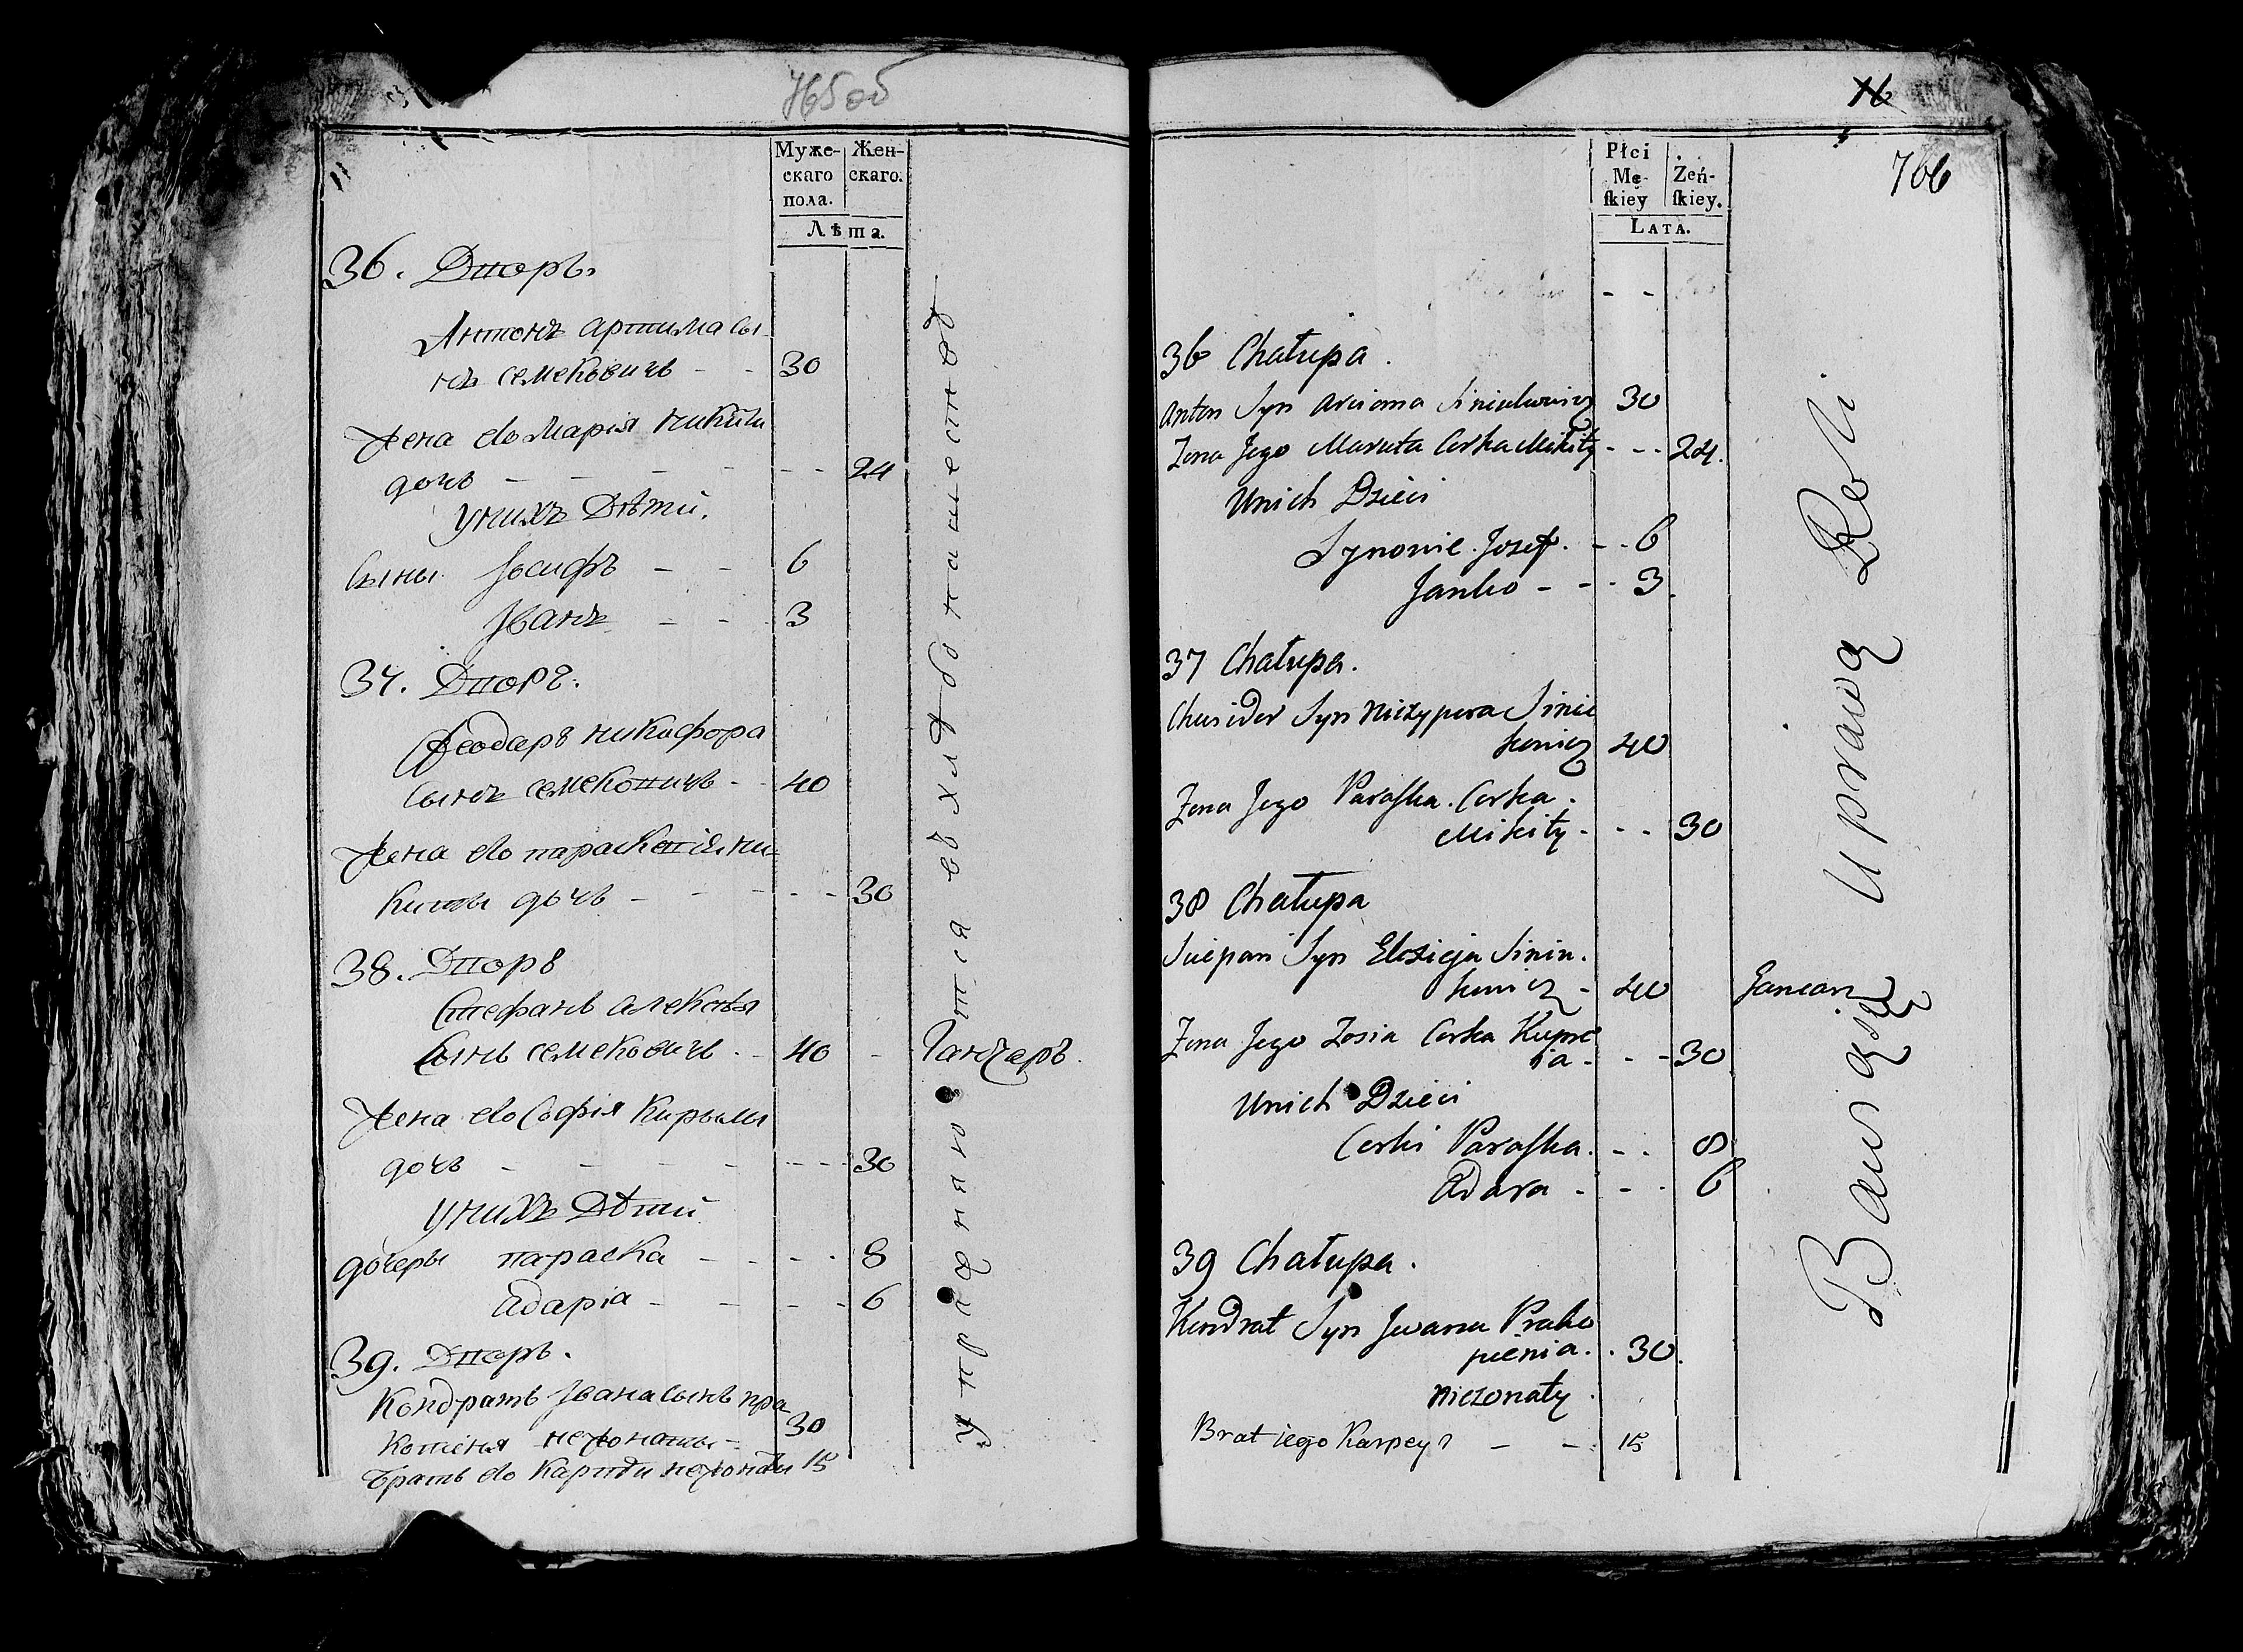 765 об
Муже-
скаго
пола.
Жен-
скаго.
Лѣта.
36. Дворъ
Антонъ Артима сы-
нъ семековичъ - - 30
Жена его Марія Никиты
дочь - - - - - 24
у нихъ Дѣти.
Сыны Іосифъ - - 6
Іванъ - - 3
37. Дворъ.
Феодаръ никифора
сынъ семековичъ - - 40
Жена его параскевія ни-
киты дочь - - - - 30
38. Дворъ
Стефанъ алексѣя
сынъ семековичъ - - 40 - Ганчаръ.
Жена его Софія Кирылы
дочь - - - - - 30
у нихъ Дѣти
дочеры параска - - - - 8
Адарія - - - - 6
39. Дворъ.
Кондратъ Івана сынъ пра
копеня нежонаты - 30
Братъ его нежонаты 15
упражняю тся въ хлѣбопашествѣ
16
766
Płci
Mę-
skiey
Żeń-
skiey.
Lata.
36 Chałupa.
Anton Syn Arcioma 30
Zona Jego Maruta Corka Mikity - - - 24.
Unich Dzieci
Synowie. Jozef. - - 6
Janko - - - 3.
37 Chałupa.
Chwiedor Syn Niczypora Sinie
kowicz 40
Zona Jego Paraska. Corka.
Mikity - - - 30
38 Chałupa
Sciepan Syn Elexieja Sinie.
kowicz - 40 Gancarz
Zona Jego Zosia Corka Kupre
ia - - - 30
Unich Dzieci
Corki Paraska. - - 8
Adara - - - 6
39 Chałupa.
Kondrat Syn Jwana Prako
pienia. . 30.
Niezonaty.
Brat iego Karpey - - 15
Bawią się Uprawą Roli